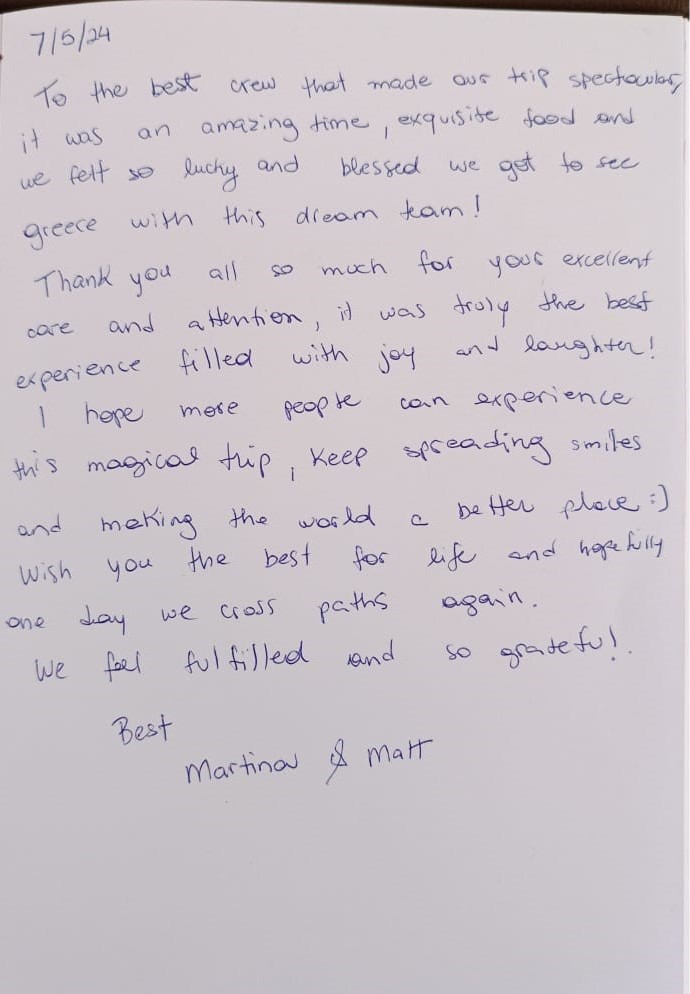 7/5/24
To the best crew that made our trip spectacular,
it was an amazing time, exquisite food and
we felt so lucky and blessed we got to see
greece with this dream team!
Thank you all so much for your excellent
care and attention, it was truly the best
experience filled with joy and laughter!
I hope more people can experience
this magical trip, keep spreading smiles
and making the world a better place :)
Wish you the best for life and hopefully
one day we cross paths again.
We feel fulfilled and so grateful!
Best
Martina & Matt